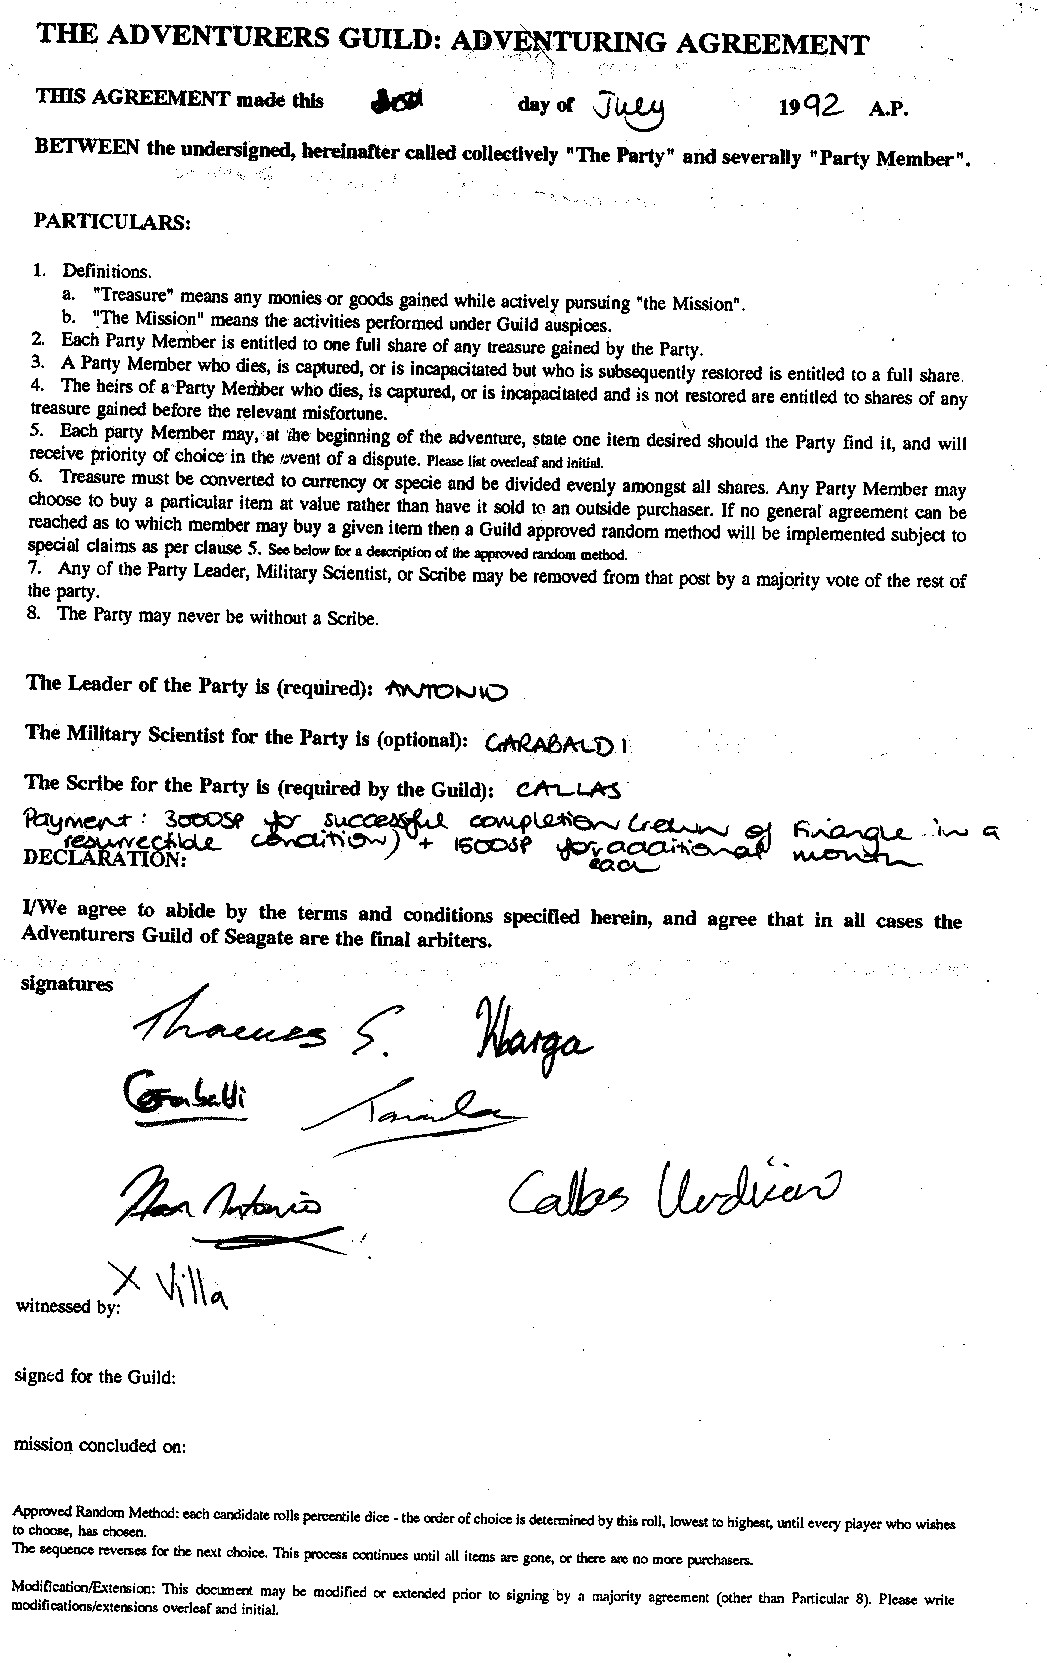 THE ADVENTURERS GUILD: ADVENTURING AGREEMENT
THIS AGREEMENT made this day of July 1992 A.P.
BETWEEN the undersigned, hereinafter called collectively "The Party" and severally "Party Member".
PARTICULARS:
1. Definitions.
a. "Treasure" means any monies or goods gained while actively pursuing "the Mission".
b. "The Mission" means the activities performed under Guild auspices.
2. Each Party Member is entitled to one full share of any treasure gained by the Party.
3. A Party Member who dies, is captured, or is incapacitated but who is subsequently restored is entitled to a full share.
4. The heirs of a Party Member who dies, is captured, or is incapacitated and is not restored are entitled to shares of any
treasure gained before the relevant misfortune.
5. Each party Member may, at the beginning of the adventure, state one item desired should the Party find it, and will
receive priority of choice in the event of a dispute. Please list overleaf and initial.
6. Treasure must be converted to currency or specie and be divided evenly amongst all shares. Any Party Member may
choose to buy a particular item at value rather than have it sold to an outside purchaser. If no general agreement can be
reached as to which member may buy a given item then a Guild approved random method will be implemented subject to
special claims as per clause 5. See below for a description of the approved random method.
7. Any of the Party Leader, Military Scientist, or Scribe may be removed from that post by a majority vote of the rest of
the party.
8. The Party may never be without a Scribe.
The Leader of the Party is (required): ANTONIO
The Military Scientist for the Party is (optional): GARABALDI
The Scribe for the Party is (required by the Guild): CALLAS
Payment: 3000SP for successful completion (return of Finangle in a
resurrectible condition) + 1500SP for additional month
each
DECLARATION:
I/We agree to abide by the terms and conditions specified herein, and agree that in all cases the
Adventurers Guild of Seagate are the final arbiters.
signatures
S. Warga
Antonio Callas
X Villa
witnessed by:
signed for the Guild:
mission concluded on:
Approved Random Method: each candidate rolls percentile dice - the order of choice is determined by this roll, lowest to highest, until every player who wishes
to choose, has chosen.
The sequence reverses for the next choice. This process continues until all items are gone, or there are no more purchasers.
Modification/Extension: This document may be modified or extended prior to signing by a majority agreement (other than Particular 8). Please write
modifications/extensions overleaf and initial.